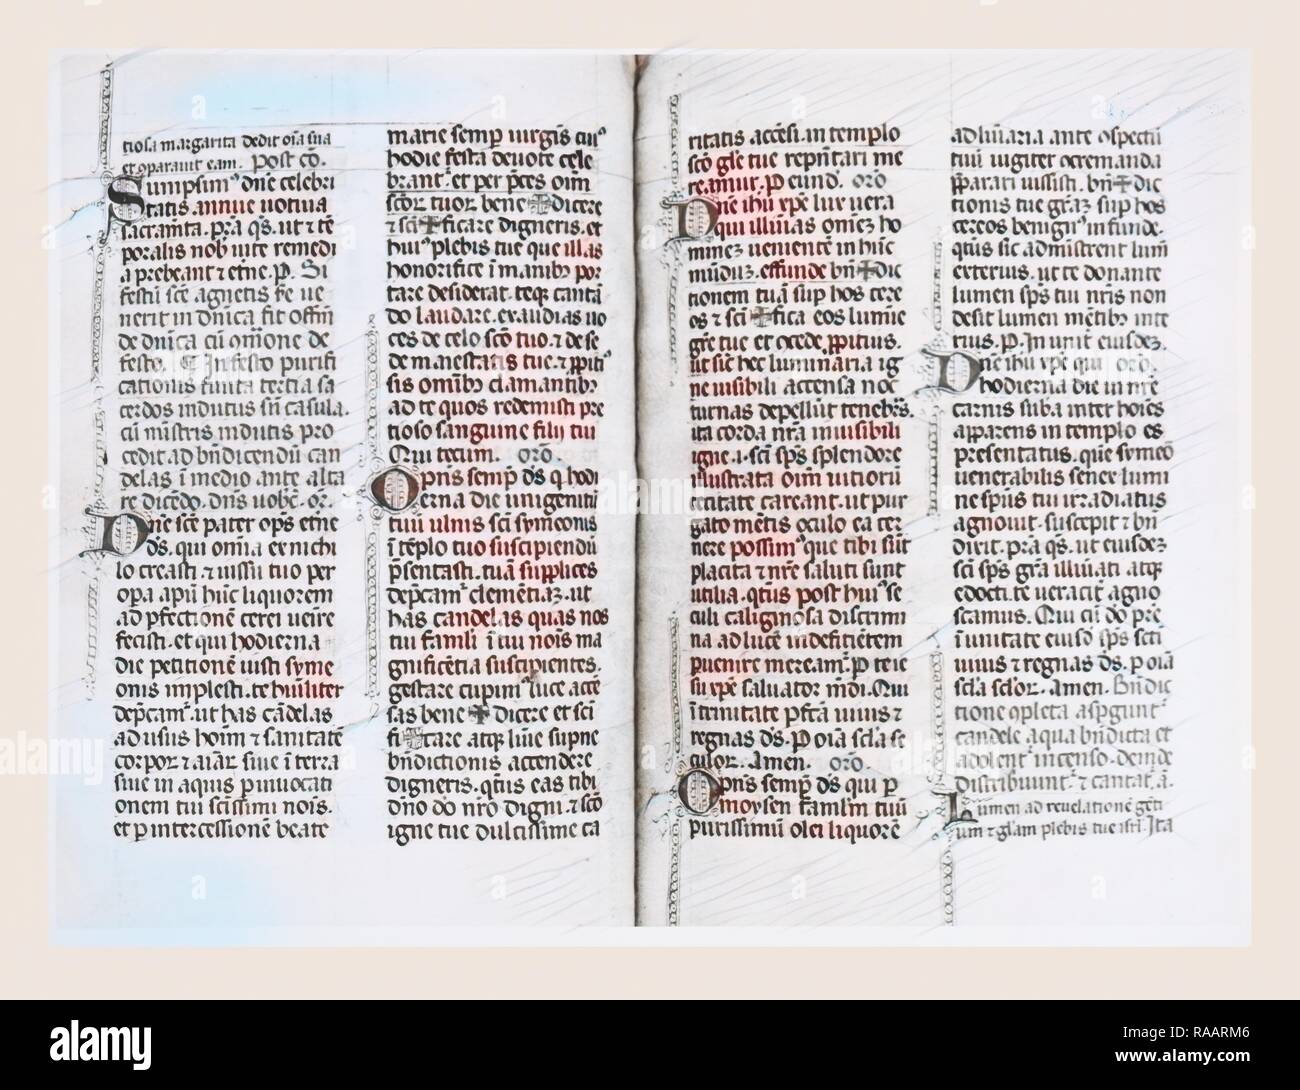 tiosa margarita dedit oīa sua
et oparavit eam. Post cō.
Sumpsimꝰ dn̄e celebri
tatis annue votiva
sacram̄ta. pr̄a qs̄. ut ⁊ tē
poralis nob̄ vite remedi
a prebeant ⁊ et̄ne. P. Si
festū sc̄e agnetis fe ve
nerit in dn̄ica fit offm̄
de dn̄ica cū om̄ione de
festo. ¶ In festo purifi
cationis finita tertia sa
cerdos indutus sn̄ casula.
cū mīstris indutis pro
cedit ad bn̄dicendū can
delas ī medio ante alta
re dicēdo. dn̄s vobc̄. or̄.
Dn̄e sc̄e pater op̄s et̄ne
ds̄. qui om̄ia ex nichi
lo creasti. ⁊ iussu tuo per
op̄a apiū hūc liquorem
ad ꝑfectionē cerei veīre
fecisti. et qui hodierna
die petitionē iusti syme
onis implesti. te hūiliter
dep̄camꝰ. ut has cādelas
ad usus hoīm ⁊ sanitatē
corpoꝝ ⁊ aīaꝝ sive ī terra
sive in aquis ꝑ invocati
onem tui sc̄issimi nōis.
et ꝑ intercessionē beate
marie semꝑ virgīs cuiꝰ
hodie festa devote cele
brantꝰ. et per p̄ces oīm
sc̄oꝝ tuoꝝ bene ✠ dicere
⁊ sc̄i ✠ ficare digneris. et
huiꝰ plebis tue que illas
honorifice ī manibꝫ por
tare desiderat. teqꝫ cantā
do laudare. exaudias vo
ces de celo sc̄o tuo. ⁊ de se
de maiestatis tue. ⁊ ꝓpitiꝰ
sis omībꝫ clamantibꝫ
ad te quos redemisti pre
tioso sanguine filij tui
Qui tecum. or̄o.
Op̄ns semꝑ ds̄ q̄ hodi
erna die unigenitū
tuū ulnis sc̄i symeonis
ī tēplo tuo suscipiendū
p̄sentasti. tuā supplices
dep̄camꝰ clementiaꝫ. ut
has candelas quas nos
tui famli ī tui nōis ma
gnificētia suscipientes.
gestare cupimꝰ luce accē
sas bene ✠ dicere et sc̄i
fi ✠ tare atqꝫ lūīe supne
bn̄dictionis accendere
digneris. qtīs eas tibi
dn̄o do nr̄o digni. ⁊ sc̄o
igne tue dulcissime ca
ritatis accēsi. in templo
sc̄o gle tue repn̄tari me
reamur. P eund. or̄o
Dn̄e ihū xp̄e lux vera
qui illūīas omeꝫ ho
mineꝫ venientē in hūc
mūduꝫ. effunde bn̄ ✠ dic
tionem tuā suꝑ hos cere
os ⁊ sc̄i ✠ fica eos lumīe
gr̄e tue et ocede ꝓpitius.
ut sic̄ hec luminaria ig
ne visibili accensa noc
turnas depellūt tenebrs̄.
ita corda nr̄a invisibili
igne. i. sc̄i sp̄s splendore
illustrata oīm vitiorū
cecitate careant. ut pur
gato mētis oculo ea cer
nere possimꝰ que tibi sūt
placita ⁊ nr̄e saluti sunt
utilia. qtīs post huiꝰ se
culi caliginosa discrimi
na ad lucē indeficiētem
ꝑvenire mereamꝰ. P te ie
su xp̄e salvator mūdi. Qui
ī trinitate ꝑfc̄ā vivis ⁊
regnas ds̄. P oīā sc̄la se
culoꝝ. amen. or̄o.
Op̄ns semꝑ ds̄ qui ꝑ
moysen famlm̄ tuū
purissimū olei liquorē
ad lūīaria ante ospectū
tuū iugiter ocremanda
p̄parari iussisti. bn̄ ✠ dic
tionis tue grāꝫ suꝑ hos
cereos benignꝰ infunde.
qtūs sic admīstrent lumn̄
exterius. ut te donante
lumen sp̄s tui nr̄is non
desit lumen mētibꝫ inte
rius. P. In unit eiusdeꝫ.
Dn̄e ihū xp̄e qui or̄o.
hodierna die in nr̄e
carnis suba inter hoīes
apparens in templo es
presentatus. que symeō
venerabilis senex lumi
ne sp̄us tui irradiatus
agnovit. suscepit ⁊ bn̄
dixit. pr̄a qs̄. ut eiusdeꝫ
sc̄i sp̄s gr̄a illūīati atqꝫ
edocti. te veracit̄ agno
scamus. Qui cū dō pr̄e
ī unitate eiusd̄ sp̄s sc̄ti
vivis ⁊ regnas ds̄. P oīā
sc̄la sc̄loꝝ. amen. Bn̄dic
tione 9pleta aspguntꝰ
candele aqua bn̄dicta et
adolentꝰ incenso. deinde
distribuuntꝰ. ⁊ cantatꝰ. ā.
Lumen ad revelationē gēti
um ⁊ glam plebis tue isrl̄. Ita
alamy
Image ID: RAARM6
www.alamy.com